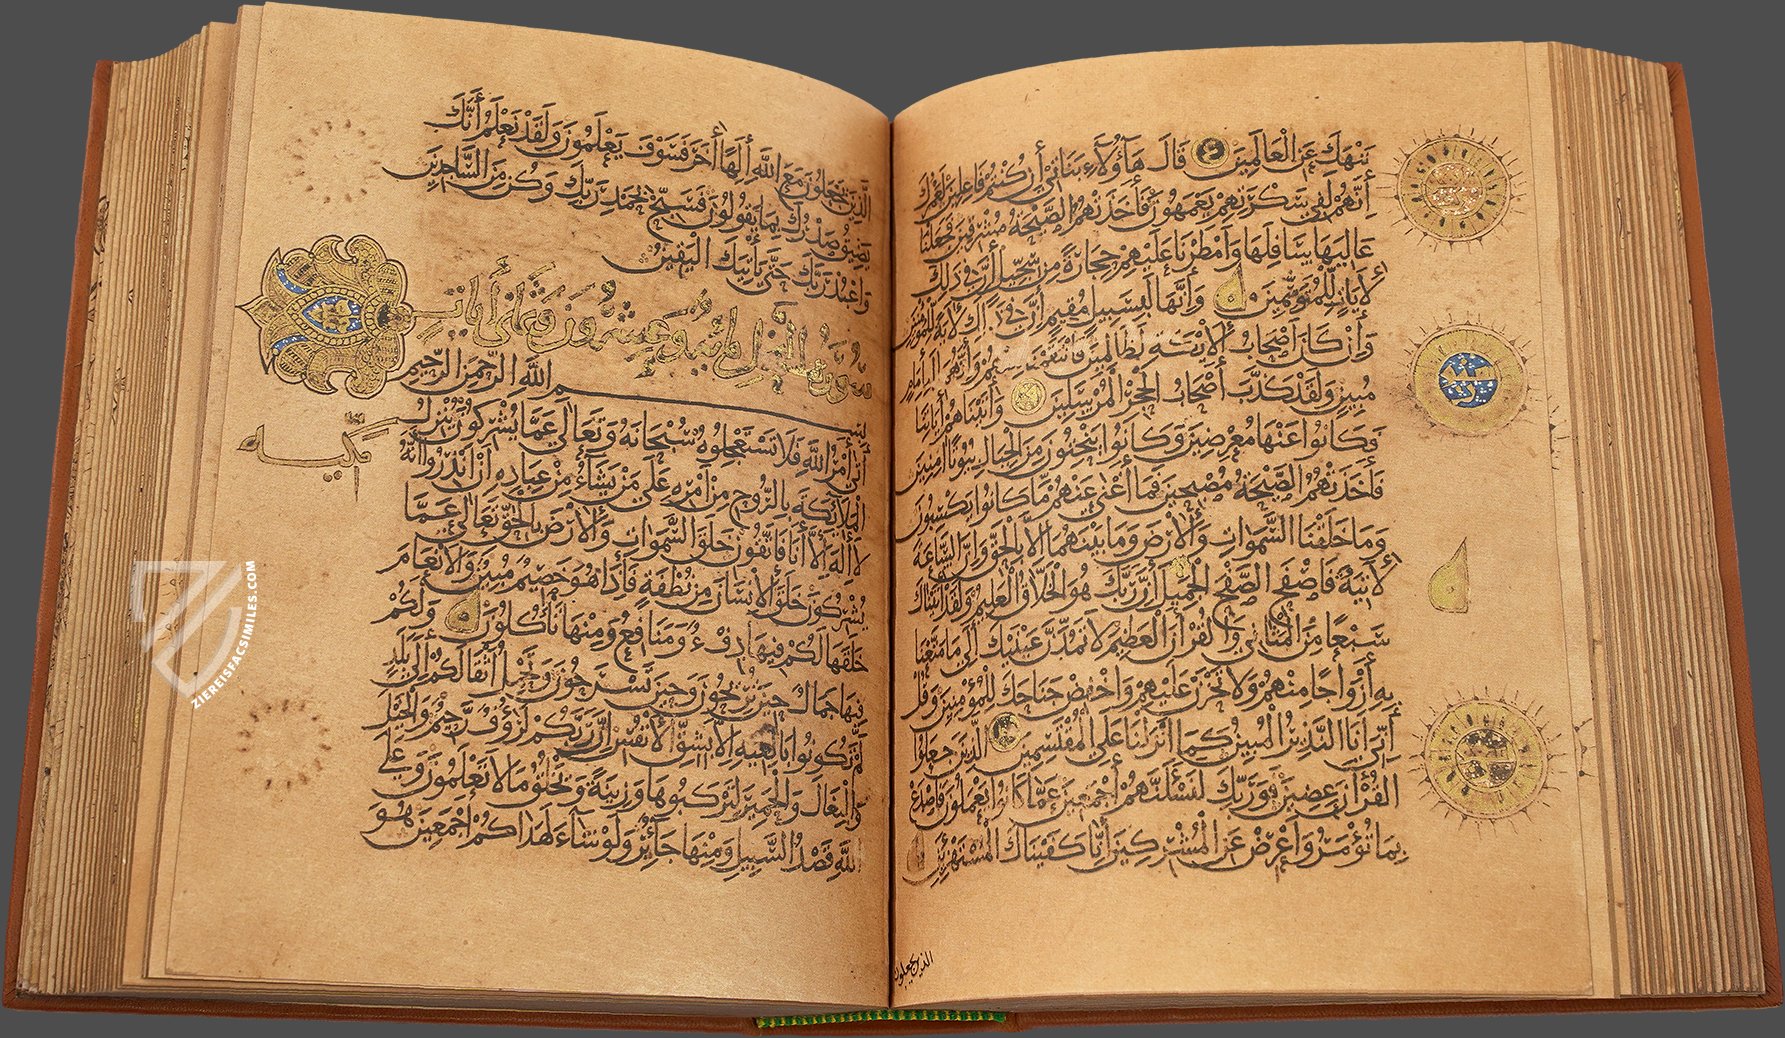 ننهك عن العالمين قال هاؤلاء بناتي إن كنتم فاعلين لعمرك
إنهم لفي سكرتهم يعمهون فأخذتهم الصيحة مشرقين فجعلنا
عاليها سافلها وأمطرنا عليهم حجارة من سجيل إن في ذلك
لآيات للمتوسمين وإنها لبسبيل مقيم إن في ذلك لآية للمؤمنين
وإن كان أصحاب الأيكة لظالمين فانتقمنا منهم وإنهما لبإمام
مبين ولقد كذب أصحاب الحجر المرسلين وآتيناهم آياتنا
فكانوا عنها معرضين وكانوا ينحتون من الجبال بيوتا آمنين
فأخذتهم الصيحة مصبحين فما أغنى عنهم ما كانوا يكسبون
وما خلقنا السموات والأرض وما بينهما إلا بالحق وإن الساعة
لآتية فاصفح الصفح الجميل إن ربك هو الخلاق العليم ولقد آتيناك
سبعا من المثاني والقرآن العظيم لا تمدن عينيك إلى ما متعنا
به أزواجا منهم ولا تحزن عليهم واخفض جناحك للمؤمنين وقل
إني أنا النذير المبين كما أنزلنا على المقتسمين الذين جعلوا
القرآن عضين فوربك لنسئلنهم أجمعين عما كانوا يعملون فاصدع
بما تؤمر وأعرض عن المشركين إنا كفيناك المستهزئين
الذين يجعلون
الذين يجعلون مع الله إلها آخر فسوف يعلمون ولقد نعلم أنك
يضيق صدرك بما يقولون فسبح بحمد ربك وكن من الساجدين
واعبد ربك حتى يأتيك اليقين
سورة النحل مائة وعشرون وثماني آيات
مكية
بسم الله الرحمن الرحيم
أتى أمر الله فلا تستعجلوه سبحانه وتعالى عما يشركون ينزل
الملائكة بالروح من أمره على من يشاء من عباده أن أنذروا أنه
لا إله إلا أنا فاتقون خلق السموات والأرض بالحق تعالى عما
يشركون خلق الإنسان من نطفة فإذا هو خصيم مبين والأنعام
خلقها لكم فيها دفء ومنافع ومنها تأكلون ولكم
فيها جمال حين تريحون وحين تسرحون وتحمل أثقالكم إلى بلد
لم تكونوا بالغيه إلا بشق الأنفس إن ربكم لرؤوف رحيم والخيل
والبغال والحمير لتركبوها وزينة ويخلق ما لا تعلمون وعلى
الله قصد السبيل ومنها جائر ولو شاء لهداكم أجمعين هو
ZIEREISFACSIMILES.COM